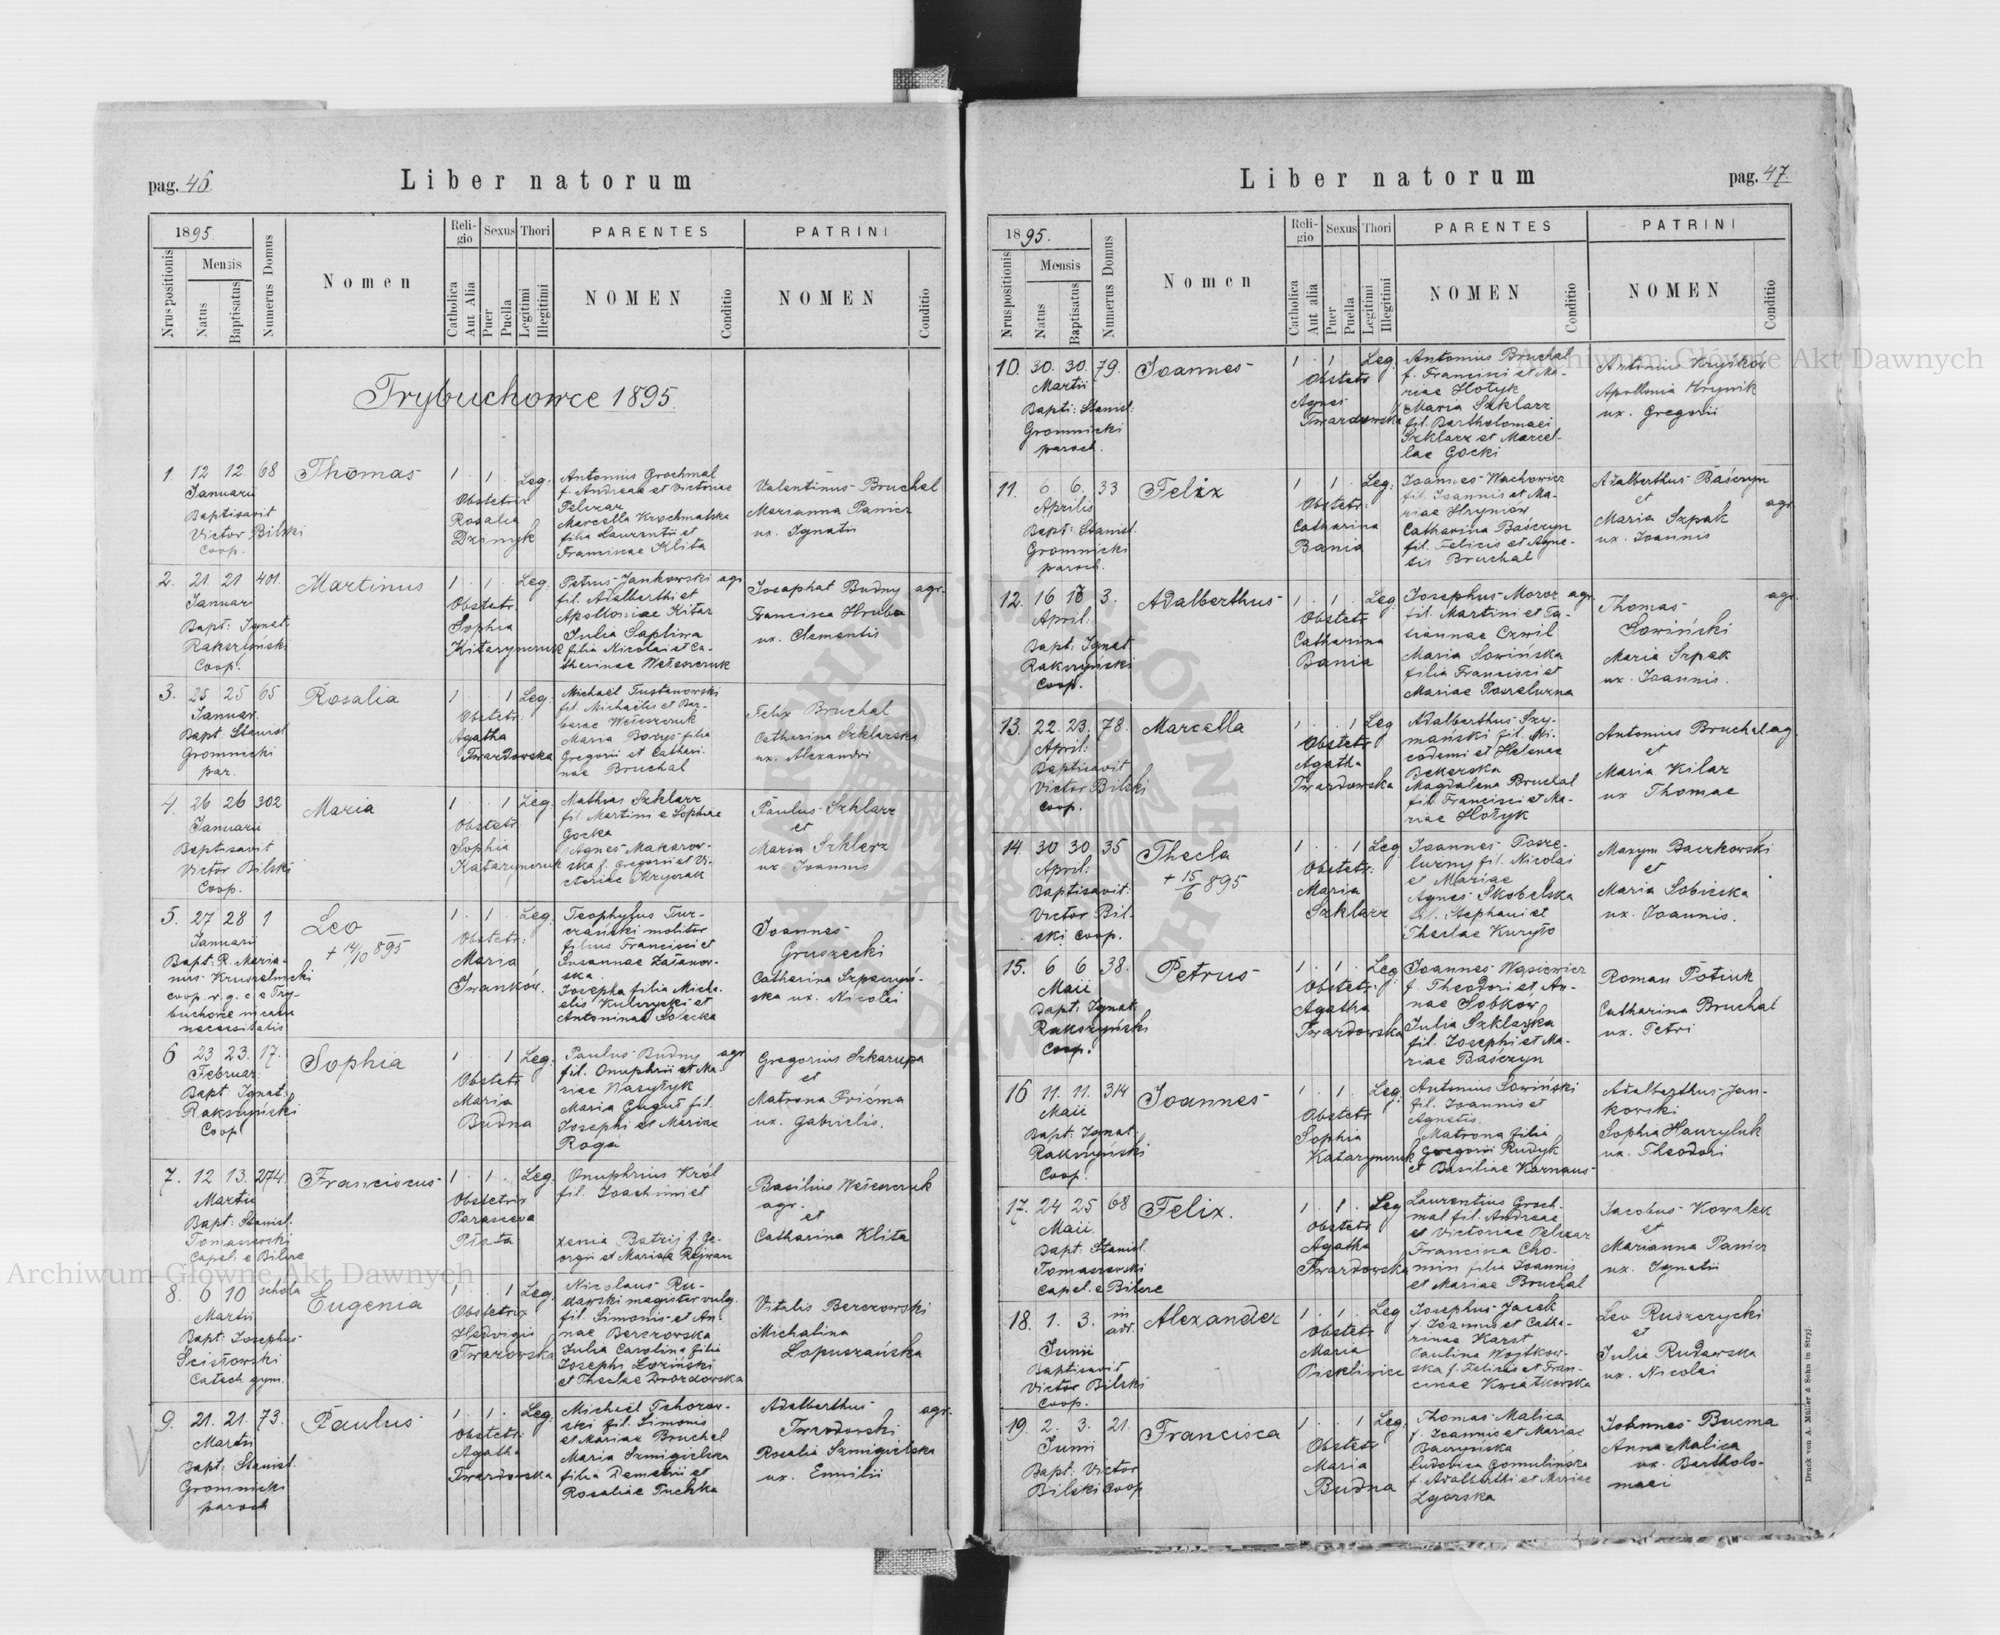 pag. 46.
Liber natorum
1895.
Nrus positionis
Mensis
Natus
Baptisatus
Numerus Domus
Nomen
Religio
Catholica
Aut Alia
Sexus
Puer
Puella
Thori
Legitimi
Illegitimi
PARENTES
NOMEN
Conditio
PATRINI
NOMEN
Conditio
Trybuchowce 1895.
1. 12 12. 68
Januarii
Baptisavit
Victor Bilski
Coop.
Thomas
1 . 1 . Leg:
Obstetrix
Rosalia
Antonius Grochmal
f. Andreae et Victoriae
Pelczar
Marcella Krochmalska
filia Laurentii et
Franciscae Klita
Valentinus Bruchal
Marianna Panicz
ux. Ignatii
2. 21. 21 401.
Januar
Bapt: Ignat.
Rakszyński
Coop.
Martinus
1 . 1 . Leg:
Obstetr.
Sophia
Petrus Jankowski agr
fil. Adalberti et
Apolloniae Kitar
Julia Sapliwa
filia Nicolai et Ca-
therinae Weleszczuk
Josaphat Budny agr.
Francisca Hruba
ux. Clementis
3. 25 25 65
Januar.
Bapt. Stanisl
Gromnicki
par.
Rosalia
1 . . 1 Leg.
Obstetr:
Agatha
Twardowska
Michaël Tustanowski
fil. Michaëlis et Bar-
barae Weleszczuk
Maria Borys filia
Gregorii et Cathari-
nae Bruchal
Felix Bruchal
Catharina Szklarska
ux. Alexandri
4. 26 26 302
Januarii
Baptisavit
Victor Bilski
Coop.
Maria
1 . . 1 Leg.
Obstetr.
Sophia
Katarynczuk
Mathias Szklarz
fil. Martini e Sophiae
Gocka
Agnes Makarow-
ska f. Gregorii et Vi-
ctoriae
Paulus Szklarz
et
Maria Szklarz
ux. Joannis
5. 27 28 1
Januarii
Bapt: R. Maria-
nus Kruszelnicki
coop. r. g. c. e Try-
buchowce in casu
necessitatis
Leo
+ 14/10 895
1 . 1 . Leg.
Obstetr:
Maria
Iwanków.
Teophylus Tur-
czański molitor
filius Francisci et
Susannae Zaźanow-
ska.
Josepha filia Micha-
elis Kulczycki et
Antoninae Solecka
Joannes
Gruszecki
Catharina Szpaczyń-
ska ux. Nicolai
6 23 23. 17.
Februar.
Bapt. Ignat:
Rakszyński
Coop.
Sophia
1 . . 1 Leg:
Obstetr
Maria
Budna
Paulus Budny agr
fil. Onuphrii et Ma-
riae Wasylyk
Maria Guguł fil.
Josephi et Mariae
Roga
Gregorius Szkarupa
et
Matrona Poićma
ux. Gabrielis.
7. 12 13. 274.
Martii
Bapt: Stanisl.
Tomaszewski
Capel. e Bilcze
Franciscus
1 . 1 . Leg.
Obstetrix
Parasceva
Płata
Onuphrius Król
fil. Joachimi et
Xenia Batrij f. Ge-
orgii et Mariae Rejwan
Basilius Weleszczuk
agr.
et
Catharina Klita
8. 6 10 schola
Martii
Bapt: Josephus
Scisłowski
Catech. gym.
Eugenia
1 . . 1 Leg.
Obstetrix
Hedvigis
Twardowska
Nicolaus Ru-
dawski magister vulg.
fil. Simonis et An-
nae Berezowska
Julia Carolina filia
Josephi Loziński
et Theclae Drozdowska
Vitalis Berezowski
Michalina
Lopuszańska
9. 21. 21. 73.
Martii
Bapt: Stanisl.
Gromnicki
paroch
Paulus
1 . 1 . Leg:
Obstetr.
Agatha
Twardowska
Michaël Tchorow-
ski fil. Simonis
et Mariae Bruchal
Maria Szmigielska
filia Demetrii et
Rosaliae Tuchka
Adalberthus agr.
Twardowski
Rosalia Szmigielska
ux. Emilii
Liber natorum
pag. 47.
1895.
Nrus positionis
Mensis
Natus
Baptisatus
Numerus Domus
Nomen
Religio
Catholica
Aut alia
Sexus
Puer
Puella
Thori
Legitimi
Illegitimi
PARENTES
NOMEN
Conditio
PATRINI
NOMEN
Conditio
10. 30. 30. 79.
Martii
Bapti: Stanisl:
Gromnicki
paroch.
Joannes
1 . 1 . Leg.
Obstetr
Agnes
Twardowska
Antonius Bruchal
f. Francisci et Ma-
riae Hołyk
Maria Szklarz
fil. Bartholomaei
Szklarz et Marcel-
lae Gocki
Apollonia Hrynik
ux. Gregorii
11. 6. 6. 33
Aprilis
Bapt: Stanisl.
Gromnicki
paroch.
Felix
1 . 1 . Leg:
Obstetr:
Catharina
Bania
Joannes Wachowicz
fil. Joannis et Ma-
riae Hryniów
Catharina Baśczyn
fil. Felicis et Agne-
tis Bruchal
Adalberthus Baśczyn
et agr.
Maria Szpak
ux. Joannis
12. 16 18 3.
April:
Bapt: Ignat
Rakszyński
Coop.
Adalberthus
1 . 1 . Leg:
Obstetr
Catharina
Bania
Josephus Moroz agr.
fil. Martini et Ta-
tiannae Czwil
Maria Sowińska
filia Francisci et
Mariae Poszelużna
Thomas agr.
Sowiński
Maria Szpak
ux. Joannis.
13. 22. 23. 78.
April:
Baptisavit
Victor Bilski
Coop.
Marcella
1 . . 1 Leg
Obstetr
Agatha
Twardowska
Adalberthus Szy-
mański fil. Ni-
codemi et Helenae
Bekerska
Magdalena Bruchal
fil. Francisci et Ma-
riae Hołyk
Antonius Bruchal ag.
et
Maria Kilar
ux Thomae
14. 30 30 35
April:
Baptisavit:
Victor Bil-
ski coop.
Thecla
+ 15/6 895
1 . . 1 Leg.
Obstetr:
Maria
Szklarz
Joannes Posze-
lużny fil. Nicolai
et Mariae
Agnes Skobelska
fil. Stephani et
Theclae Kuryło
Maxym Baczkowski
et
Maria Sobieska
ux. Joannis.
15. 6 6 38.
Maii
Bapt: Ignat.
Rakszyński
Coop.
Petrus
1 . 1 . Leg:
Obstetr:
Agatha
Twardowska
Joannes Wąsiewicz
f. Theodori et An-
nae Sobków
Julia Szklarska
fil. Josephi et Ma-
riae Baśczyn
Roman Potiuk
Catharina Bruchal
ux. Petri
16 11. 11. 314
Maii
Bapt: Ignat.
Rakszyński
Coop.
Joannes
1 . 1 . Leg:
Obstetr
Sophia
Katarynczuk
Antonius Sowiński
fil. Joannis et
Agnetis.
Matrona filia
Gregorii Rudyk
et Basiliae Karnaus
Adalberthus Jan-
kowski
Sophia Hawryluk
ux. Theodori
17. 24 25 68
Maii.
Bapt: Stanisl.
Tomaszewski
Capel. e Bilcze
Felix.
1 . 1 . Leg
Obstetr.
Agatha
Twardowska
Laurentius Groch-
mal fil. Andreae
et Victoriae Pelczar
Francisca Cho-
min filia Joannis
et Mariae Bruchal
Jacobus Kowalek
et
Marianna Panicz
ux. Ignatii
18. 1. 3. in
adr.
Junii
Baptisavit
Victor Bilski
Coop.
Alexander
1 . 1 . Leg
Obstetr.
Maria
Josephus Jacek
f. Joannis et Catha-
rinae Karst
Paulina Wojtkow-
ska f. Felicis et Fran-
ciscae Kwiatkowska
Leo Ruszczycki
et
Julia Rudawska
ux. Nicolai
19. 2. 3. 21.
Junii
Bapt: Victor
Bilski Coop
Francisca
1 . . 1 Leg.
Obstetr
Maria
Budna
Thomas Malica
f. Joannis et Mariae
Baczyńska
Ludovica Gomulińska
f. Adalberthi et Mariae
Zgorska
Johannes Bucma
Anna Malica
ux. Bartholo-
maei
Druck von A. Müller & Sohn in Stryj.
Archiwum Główne Akt Dawnych
Archiwum Główne Akt Dawnych